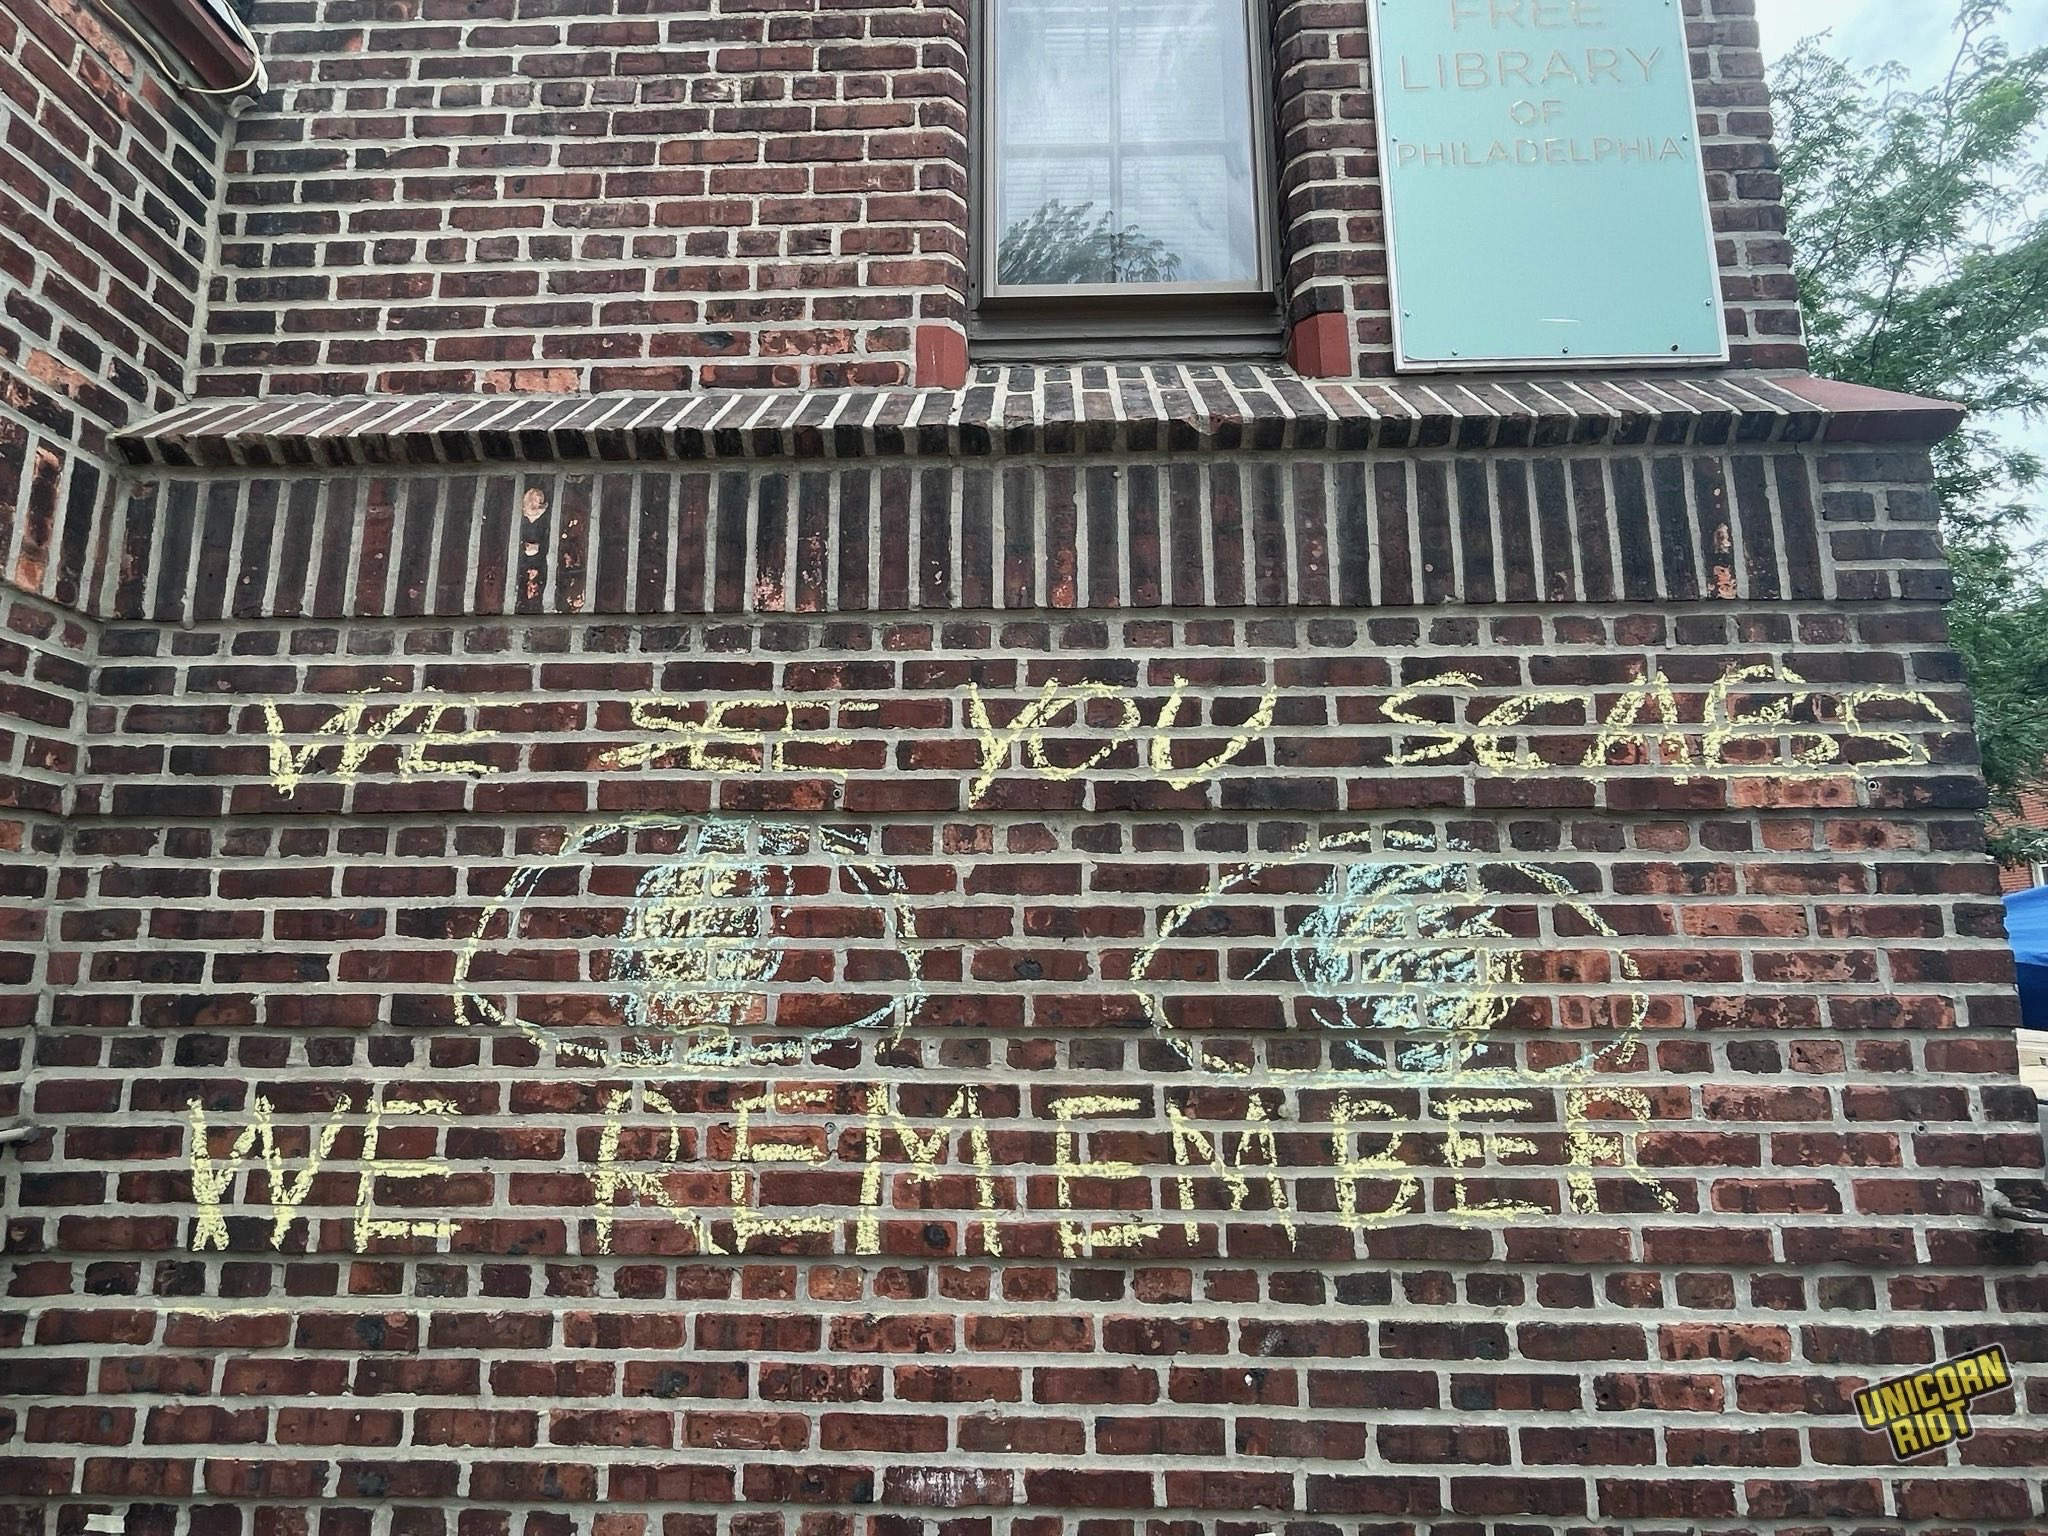 FREE
LIBRARY
OF
PHILADELPHIA
WE SEE YOU SCABS
WE REMEMBER
UNICORN
RIOT